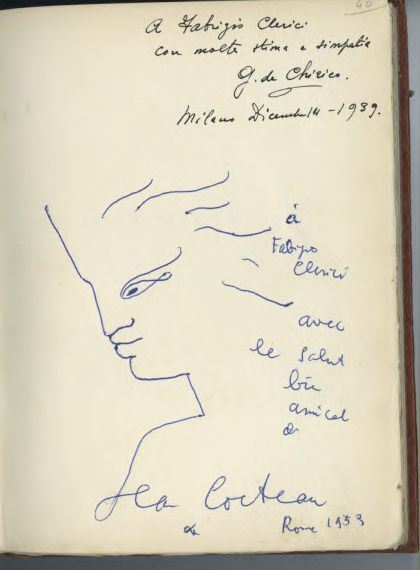 40
A Fabrizio Clerici
con molta stima e simpatia
G. de Chirico.
Milano Dicembre - 1939.
à
Fabrizio
Clerici
avec
le salut
bien
amical
de
Jean Cocteau
Rome 1953